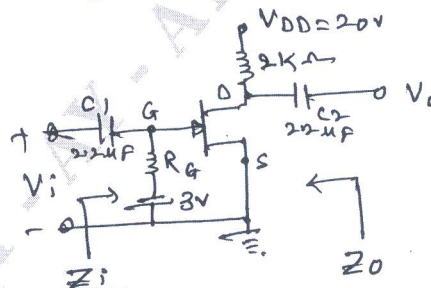 VDD=20V
2KΩ
D
C1
G
C2
22μF
V
+
2.2μF
RG
S
Vi
3V
-
Zi
Zo